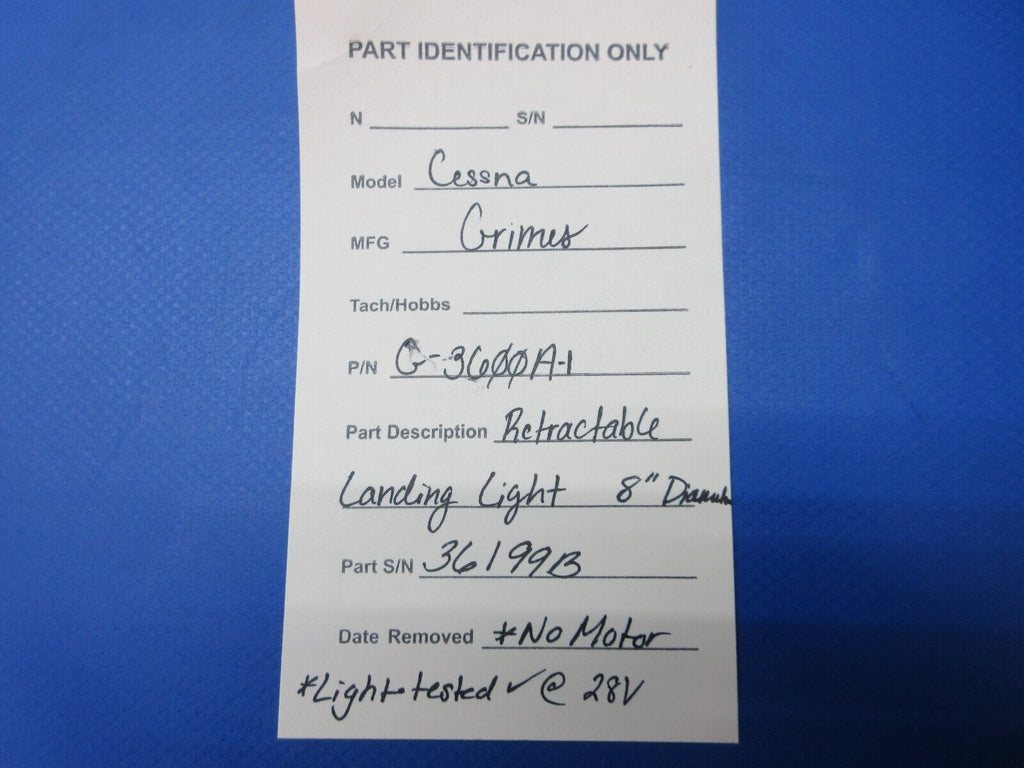 PART IDENTIFICATION ONLY
N S/N
Model Cessna
MFG Grimes
Tach/Hobbs
P/N G-3600A-1
Part Description Retractable
Landing Light 8"
Part S/N 36199B
Date Removed *No Motor
*Light tested ✓ @ 28V